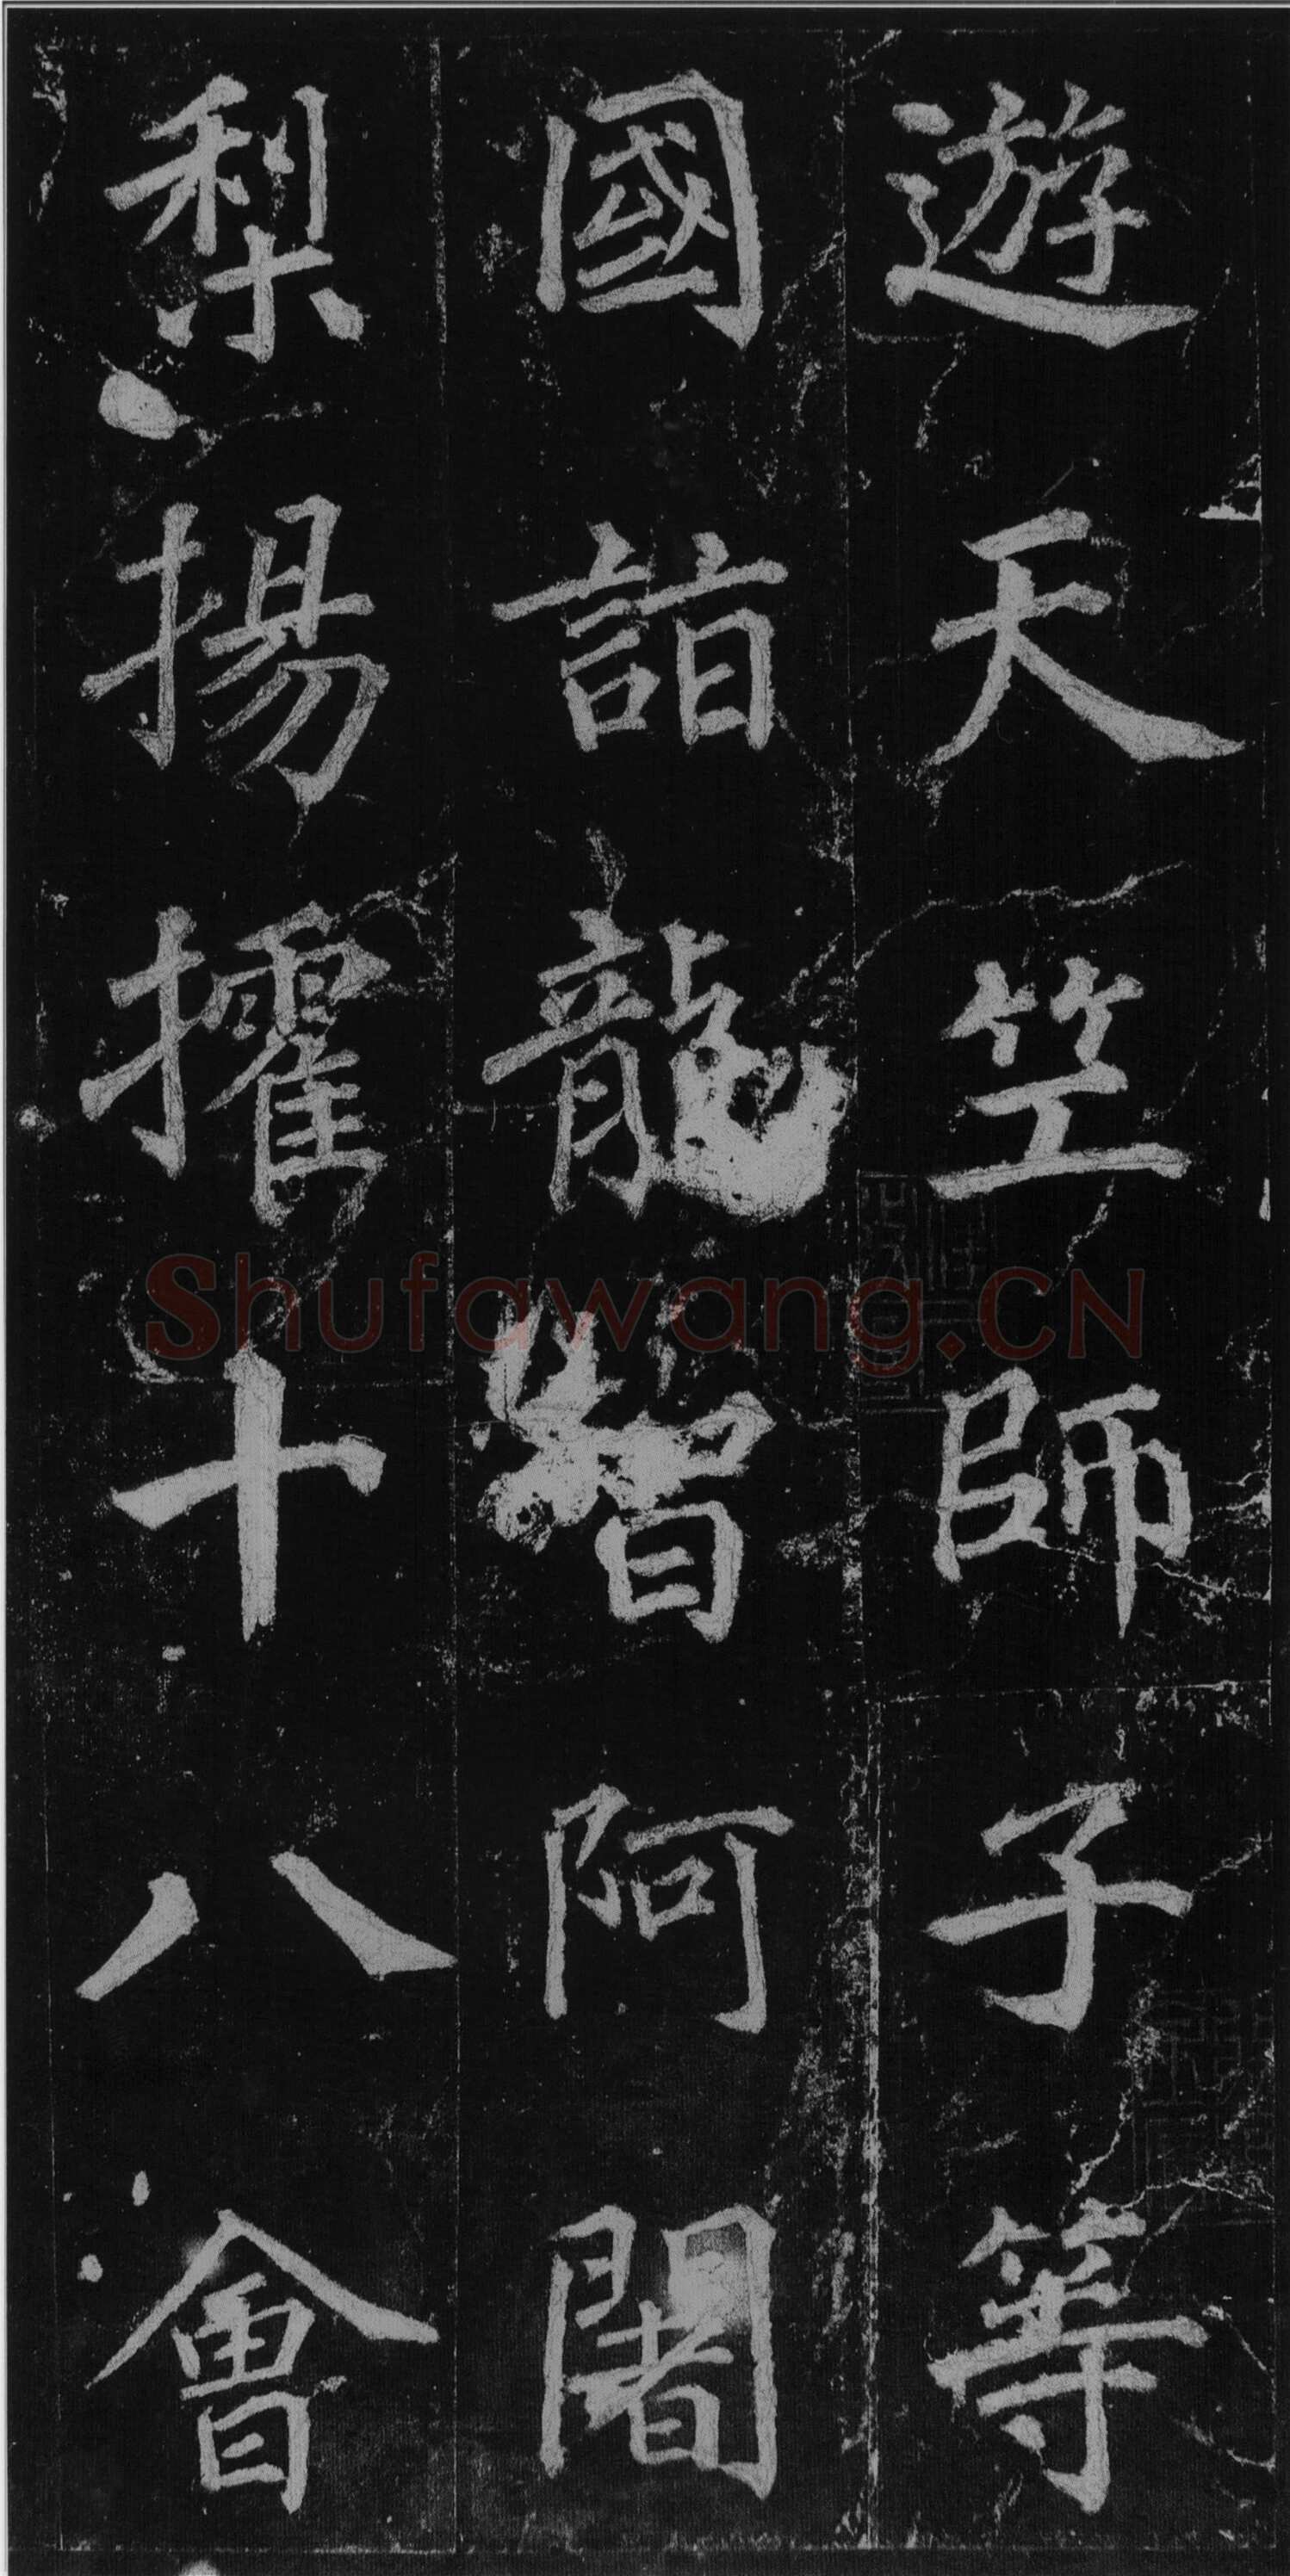 遊天竺師子等
國詣龍智阿闍
梨揚攉十八會
Shufawang.CN